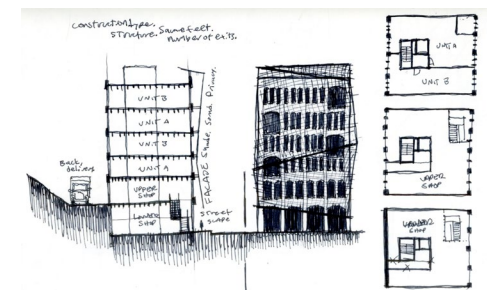 construction type.
structure. Square feet.
number of exits.
UNIT B
UNIT A
UNIT B
UNIT A
UPPER
SHOP
LOWER
SHOP
Back
delivery
FACADE Shade, Sound, Privacy.
STREET
SCAPE
UNIT A
UNIT B
UPPER
SHOP
LOWER
SHOP